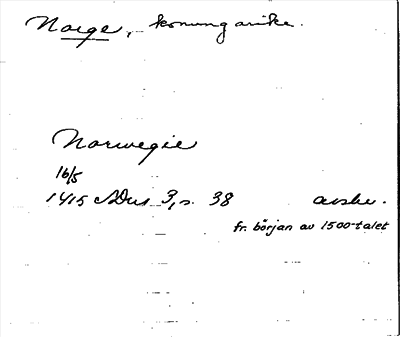 Norge, konungarike.
Norwegie
16/5
1415 SDns 3, s. 38 avskr.
fr. början av 1500-talet